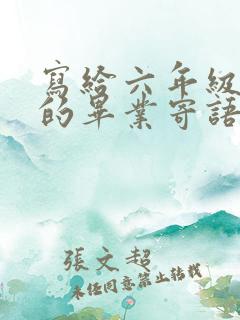 寫給六年級
的畢業寄語
張文超
未經同意禁止转载